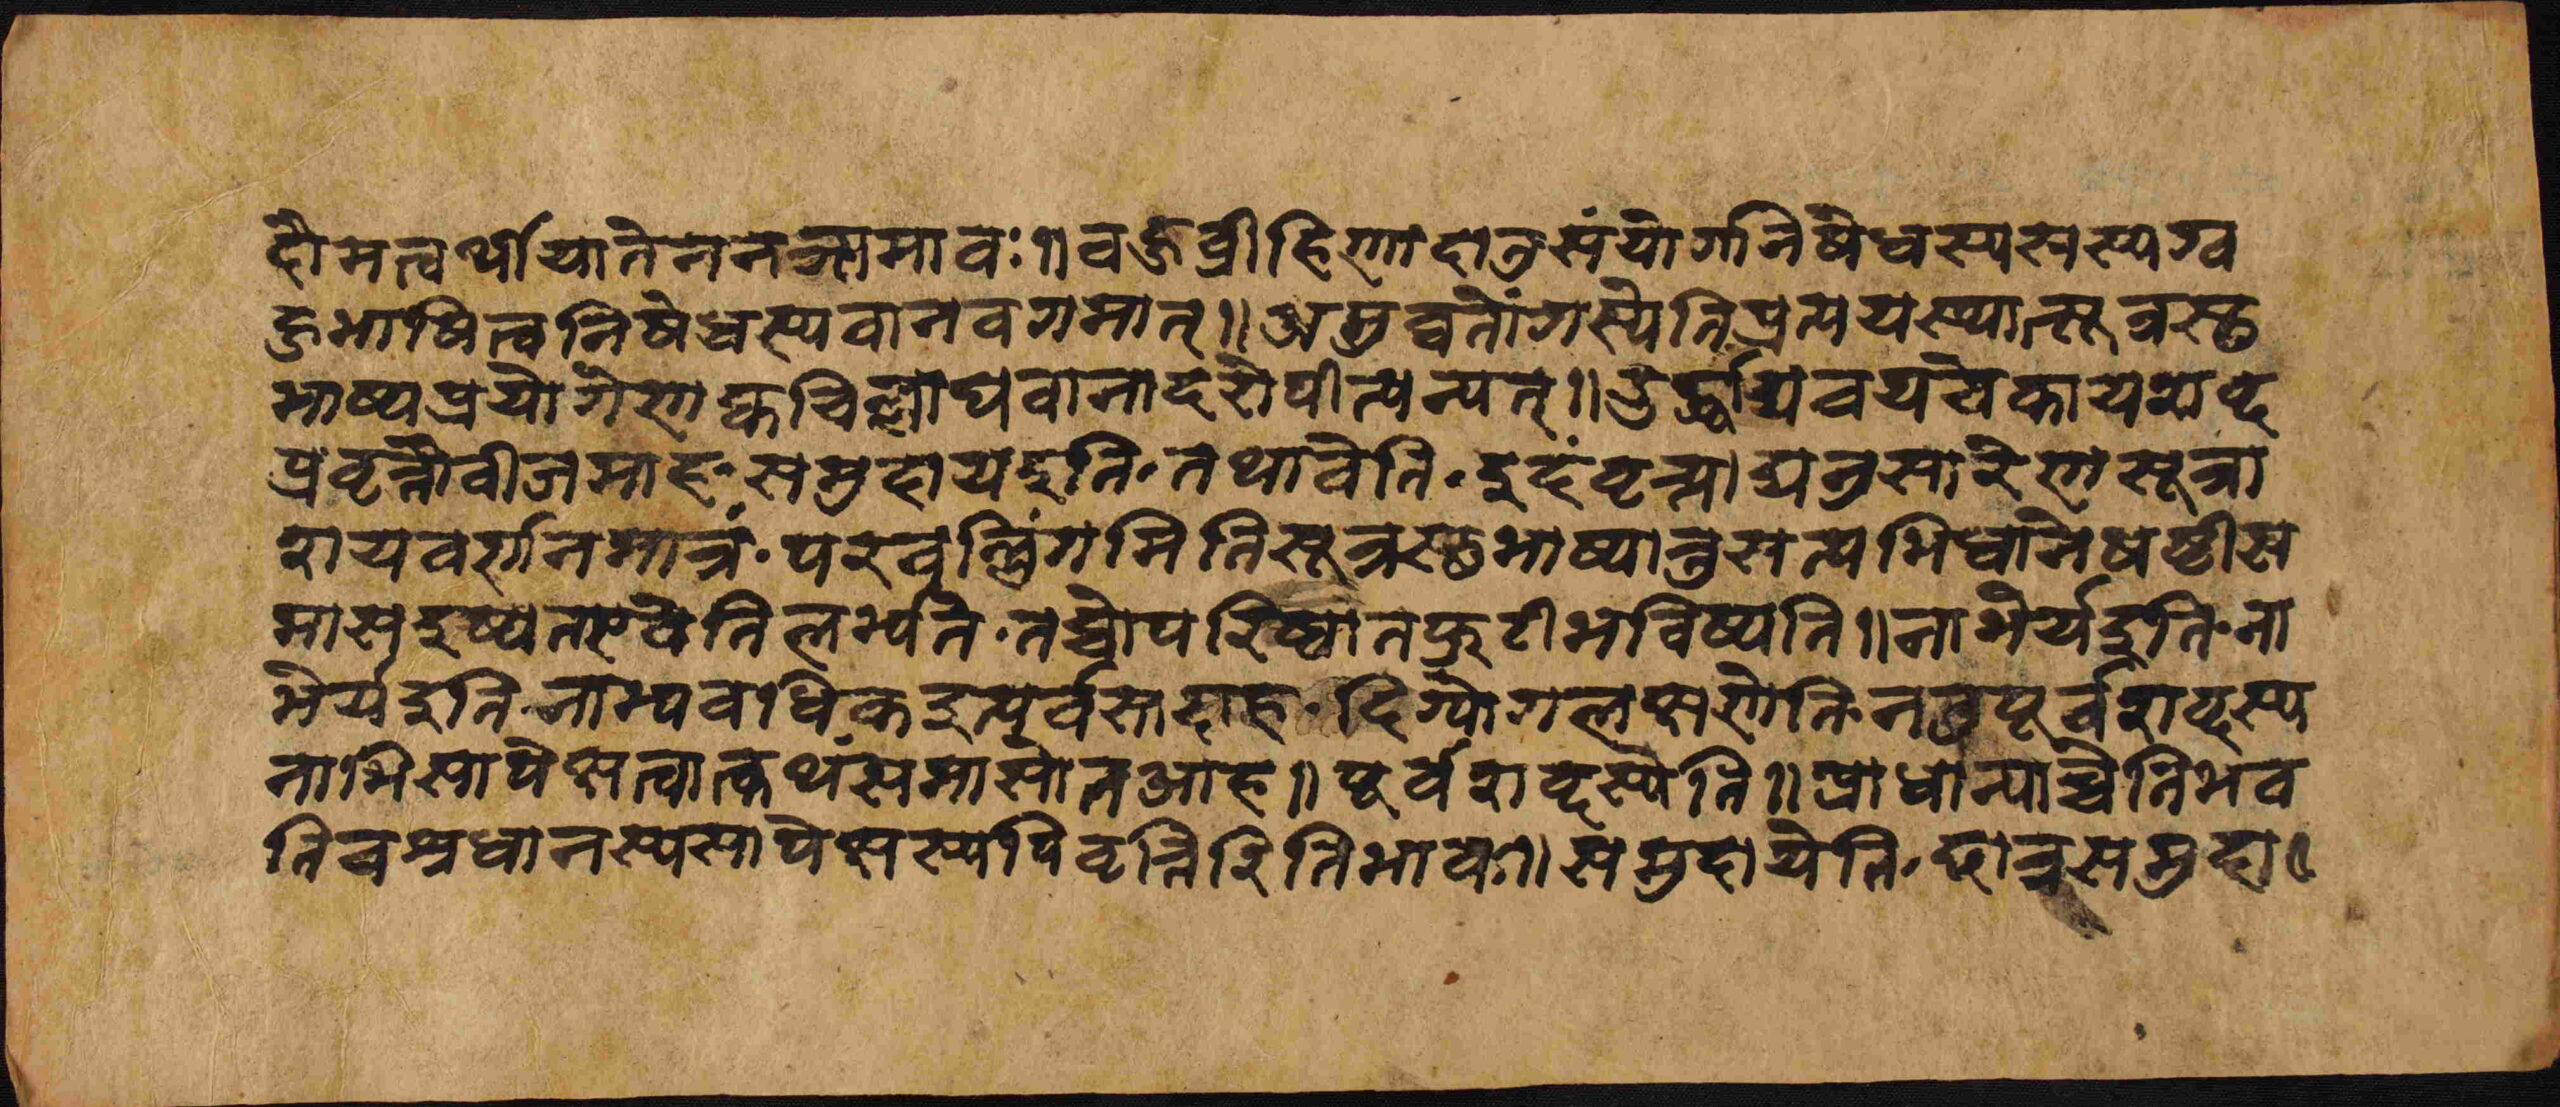 दौमत्वर्थीयातेननञ्समावः॥बहुव्रीहिणादात्तुसंयोगनिषेधस्यसस्यग्व
दुभाषित्वनिषेधस्यवानवगमात्॥अमुद्वतोंगस्येतिप्रत्ययस्प्यात्सूत्रस्छ
भाष्यप्रयोगेणक्वचिल्लाघवानादरोपीत्यन्यत्॥उर्द्धाद्यवयवेकायशब्द
प्रवृत्तौवीजमाह॰समुदायइति॰तथावेति॰इदंवृत्त्याद्यनुसारेणसूत्रा
शयवर्णनमात्रं॰परवल्लिंगमितिसूत्रस्छभाष्यानुसत्यभिधानेषष्ठीस
मासइष्यतएवेतिलभ्यते॰तच्चोपरिष्टातफुटीभविष्यति॥नाभेर्यइति॰ना
भेर्यइति॰नाभ्यवधिकइत्पूर्वसादाह॰दिग्योगलक्षणेति॰नवपूर्वशब्दस्य
नाभिसापेक्षत्वात्कथंसमासोतआह॥पूर्वशब्दस्येति॥प्राधान्याच्चेतिभव
तिवप्रधानस्यसापेक्षस्यपिवृत्तिरितिभावः॥समुदायेति॰छात्रसमुदा